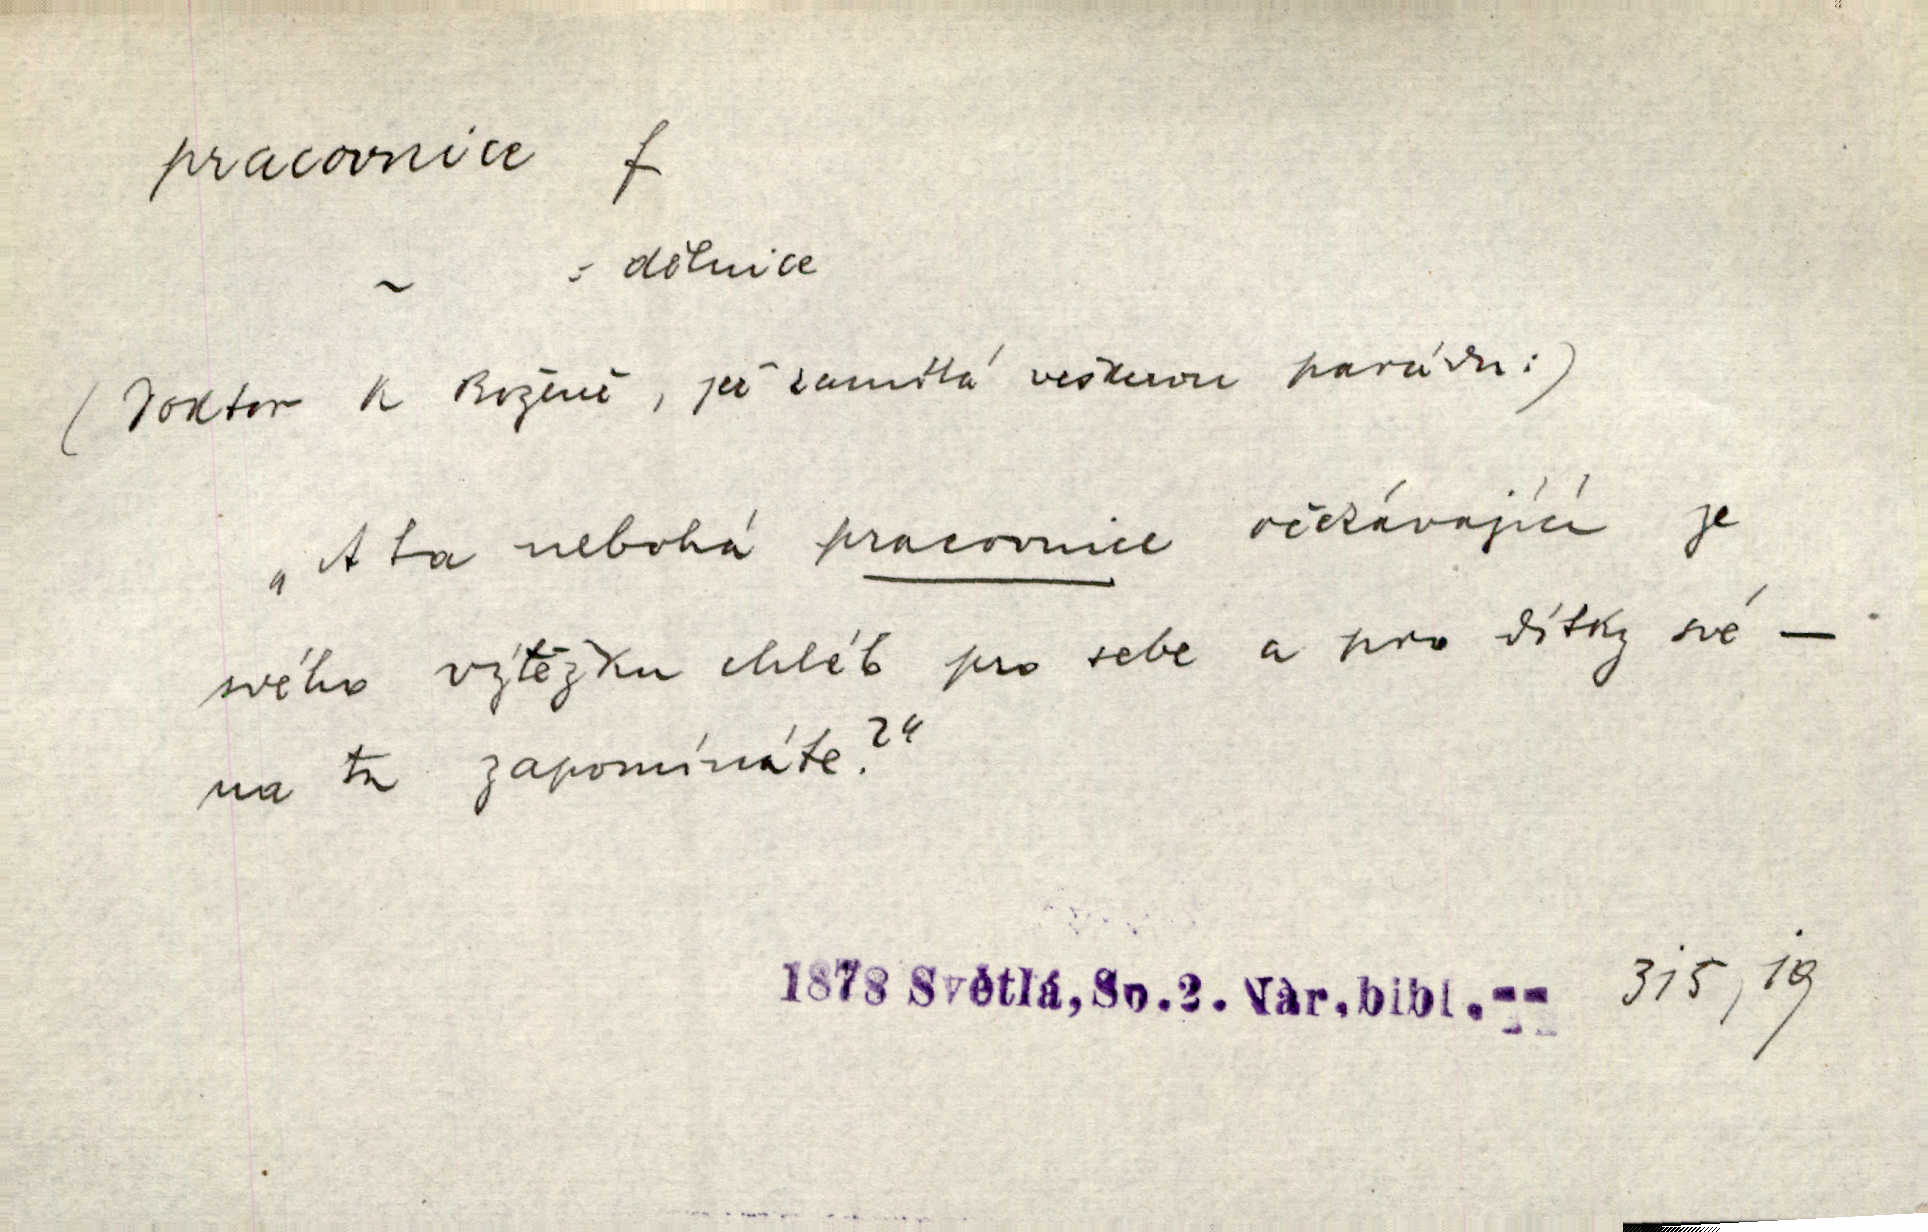 pracovnice f
~ = dělnice
(Doktor k Boženě, jež zamítá veškerou parádu:)
„A ta nebohá pracovnice očekávající ze
svého výtěžku chléb pro sebe a pro dítky své —
na tu zapomínáte?“
1878 Světlá, Sp.2. Nár.bibl.-- 315, 19